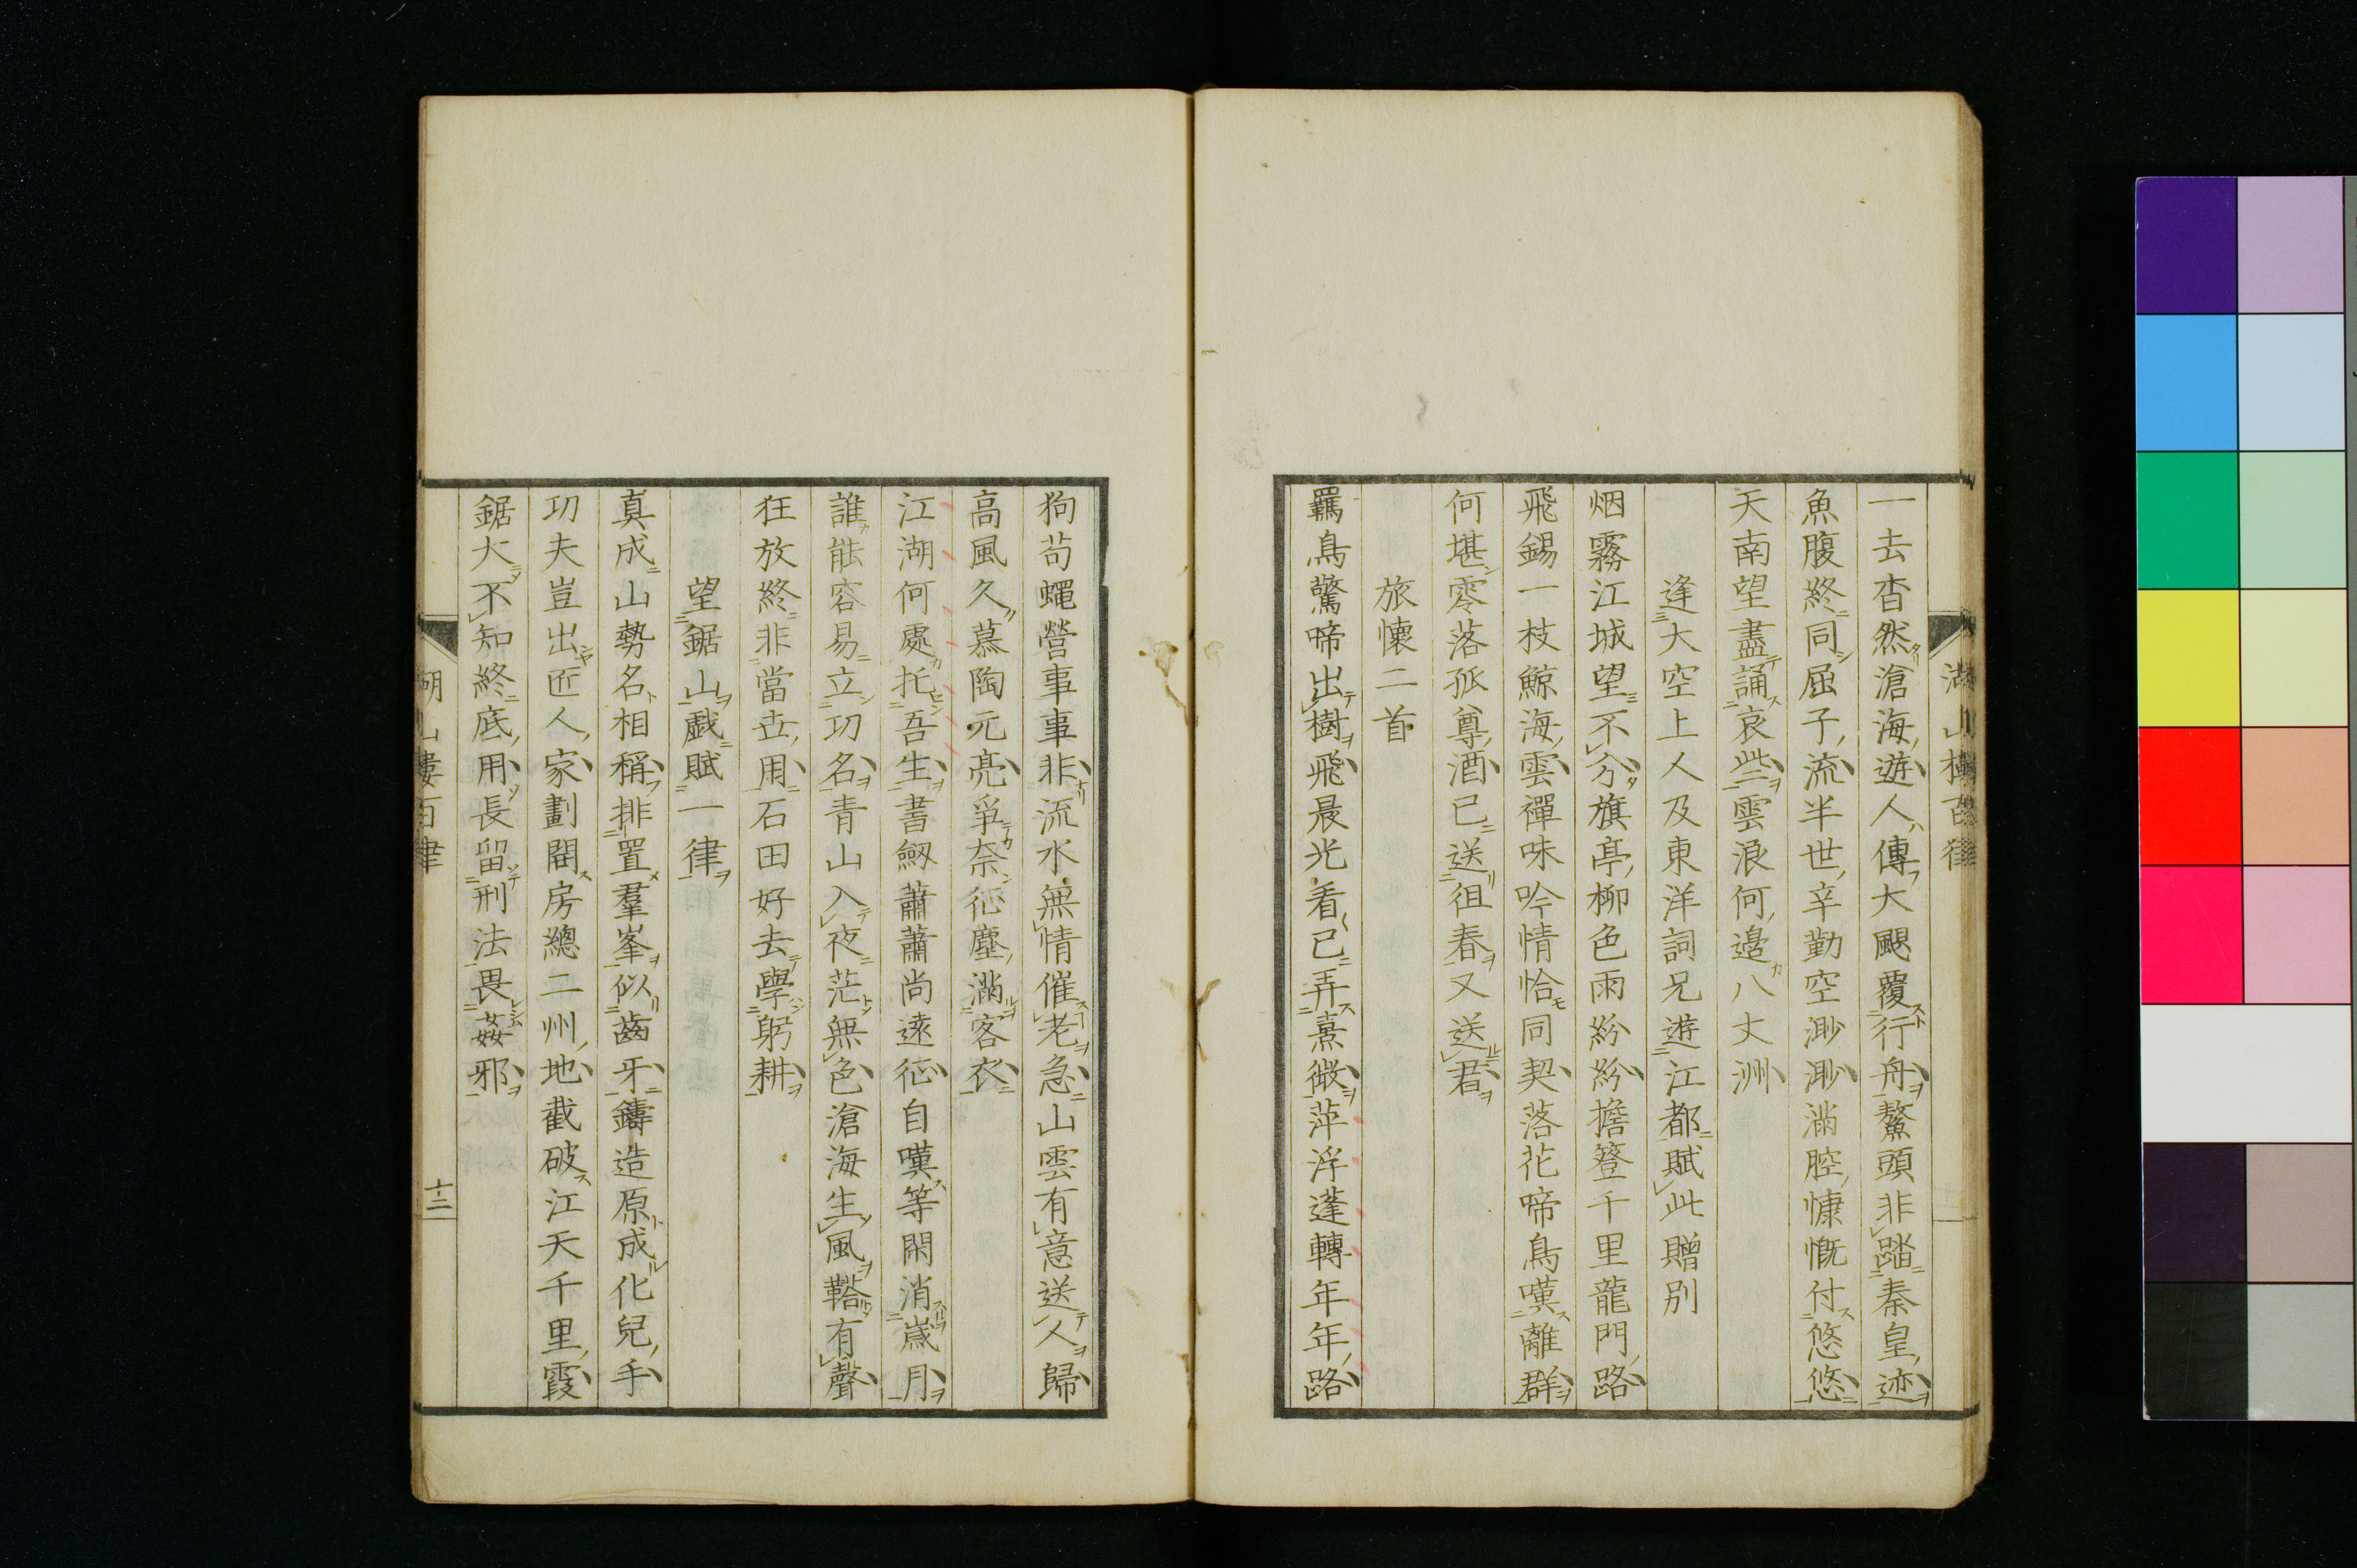 一去杳然滄海遊人傳大颶覆行舟鰲頭非踏秦皇迹
魚腹終同屈子流半世辛勤空渺渺滿腔慷慨付悠悠
天南望盡誦哀些雲浪何邉八丈洲
逢大空上人及東洋詞兄遊江都賦此贈別
烟霧江城望不分旗亭柳色雨紛紛擔簦千里龍門路
飛錫一枝鯨海雲禪味吟情恰同契落花啼鳥嘆離群
何堪零落孤尊酒已送徂春又送君
旅懷二首
羈鳥驚啼出樹飛晨光看已弄熹微萍浮蓬轉年年路
狗苟蠅營事事非流水無情催老急山雲有意送人歸
高風久慕陶元亮爭奈征塵滿客衣
江湖何處托吾生書劔蕭蕭尚遠征自嘆等閑消歳月
誰能容易立功名青山入夜茫無色滄海生風鞳有聲
狂放終非當世用石田好去學躬耕
望鋸山戯賦一律
真成山勢名相稱排置羣峯似齒牙鑄造原成化兒手
功夫豈出匠人家劃開房總二州地截破江天千里霞
鋸大不知終底用長留刑法畏姦邪
湖山樓百律
十二